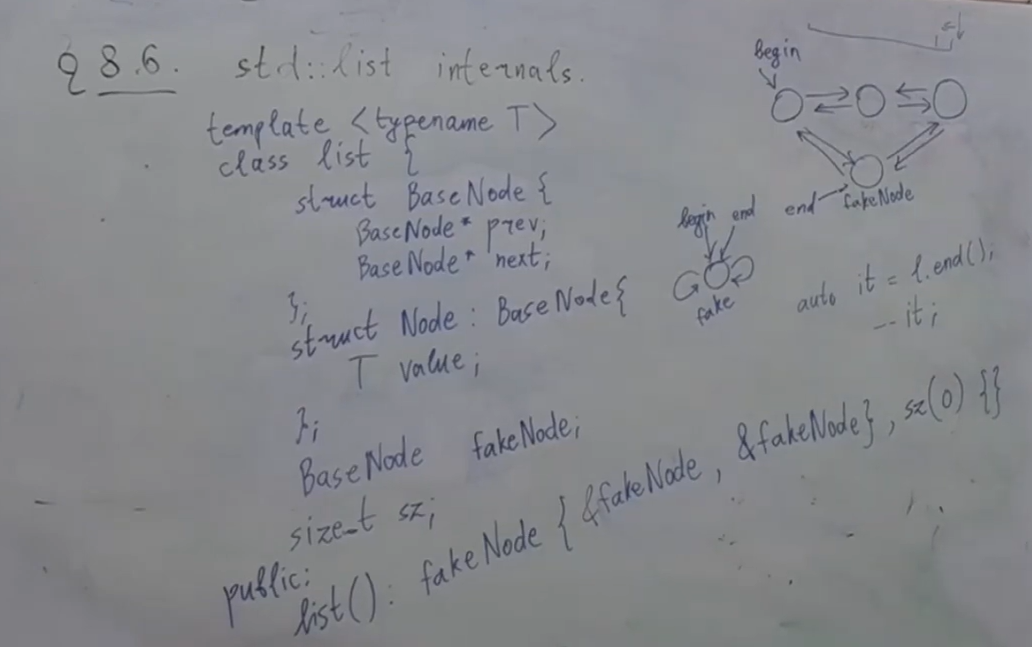 § 8.6. std::list internals.
template <typename T>
class list {
struct BaseNode {
BaseNode* prev;
BaseNode* next;
};
struct Node : BaseNode{
T value;
};
BaseNode fakeNode;
size_t sz;
public:
list(): fakeNode { &fakeNode, &fakeNode}, sz(0) {}
Begin
end fakeNode
begin end
fake
auto it = l.end();
--it;